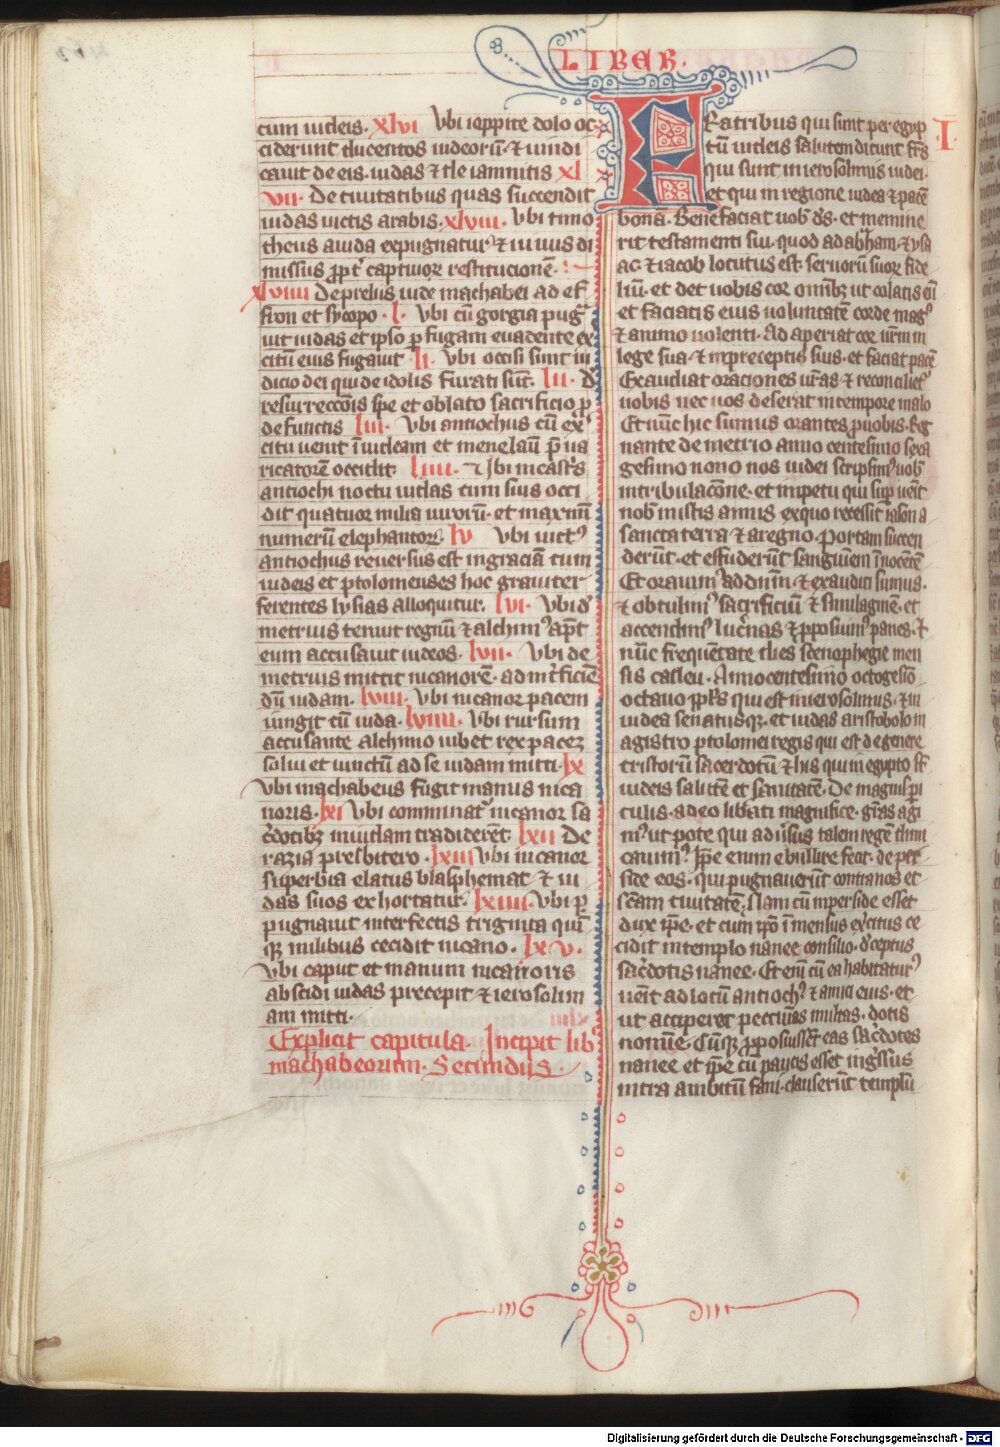 LIBER.
cum iudeis. xlvi Vbi ioppite dolo oc
ciderunt ducentos iudeorū. & uindi
cauit de eis. iudas & de iamnitis xl
vii. De ciuitatibus quas succendit
iudas uictis arabis. xlviii. Vbi timo
theus auida expugnatur & uiuus di
missus ꝓpt captiuoꝝ restitucionē.
xlviiii De preliis iude machabei ad ef
fron et sycopo. l. Vbi cū gorgia pug
uit iudas et ipso ꝑ fugam euadente ex
citū eius fugauit li. Vbi occisi sunt iu
dicio dei qui de idolis furati sūt. lii. D
resurreccōis spe et oblato sacrificio ꝓ
defunctis liii. Vbi antiochus cū ex
citu uenit ī iudeam et menelaū p̄ua
ricatorē occidit liiii. Vbi in castris
antiochi noctu iudas cum suis occi
dit quatuor milia uirorū. et maximū
numerū elephantoꝝ lv Vbi uictꝰ
antiochus reuersus est in graciā cum
iudeis et ptolomenses hoc grauiter
ferentes lysias alloquitur. lvi. Vbi d
metrius tenuit regnū & alchimꝰ apt
eum accusauit iudeos. lvii. Vbi de
metrius mittit nicanorē. ad intficiē
dū iudam. lviii. Vbi nicanor pacem
iungit cū iuda. lviiii. Vbi rursum
accusante alchimo iubet rex pacez
solui et uinctū ad se iudam mitti. lx
Vbi machabeus fugit manus nica
noris. lxi Vbi comminat nicanor sa
cdotibꝫ ni iudam tradiderēt lxii De
razia presbitero. lxiii Vbi nicanor
superbia elatus blasphemat & iu
das suos exhortatur. lxiiii. Vbi ꝓ
pugnauit interfectis triginta quī
qꝫ milibus cecidit nicano. lxv.
Vbi caput et manum nicanoris
abscidi iudas precepit & ierosolim
am mitti.
Explicit capitula. Incipit lib
machabeorum. Secundus.
I
Fratribus qui sunt per egyp
tū iudeis salutem dicunt frs
qui sunt in ierosolimis iudei.
et qui in regione iudea & pacē
bonā. Benefaciat uob ds. et memine
rit testamenti sui. quod ad abham. & ysa
ac. & iacob locutus est. seruorū suoꝝ fide
liū. et det uobis cor omibꝫ ut colatis eū
et faciatis eius uoluntatē corde mag
& animo uolenti. Adaperiat cor urm in
lege sua. & in preceptis suis. et faciat pacē
Exaudiat oraciones uras & reconciliet
uobis nec uos deserat in tempore malo
Et nūc hic sumus orantes pro uobis. Reg
nante demetrio anno centesimo sexa
gesimo nono nos iudei scripsimꝰ uob
in tribulacōne. et impetu qui supuenit
nob in istis annis exquo recessit iason a
sancta terra & a regno. Portam succen
derūt. et effuderūt sanguinem īnocētē
Et orauimꝰ ad dnm & exauditi sumus.
& obtulimꝰ sacrificiū & similaginē. et
accendimꝰ lucnas & ꝓposuimꝰ panes. &
nūc frequētate dies scenophegie men
sis casleu. Anno centesimo octogesiō
octauo ppls qui est in ierosolimis. & in
iudea senatusqꝫ. et iudas aristobolo m
agistro ptolomei regis qui est de genere
cristorū sacerdotū & his qui in egypto st
iudeis salutē et sanitatē. De magnis pi
culis. a deo libati magnifice. gras agi
mꝰ ut pote qui aduersus talem regē dimi
cauimꝰ. Ipse enim ebullire fecit. de per
side eos. qui pugnauerūt contra nos et
scam ciuitatē. Nam cū in perside esset
dux ipse. et cum ipso īmensus exercitus ce
cidit in templo nanee consilio. deceptus
sacdotis nanee. Etenī cū ea habitaturꝰ
uenit ad locū antiochꝰ & amici eius. et
ut acciperet peccunias multas. dotis
nomine. Cūqꝫ ꝓposuissēt eas sacdotes
nanee et ipse cū paucis esset ingressus
intra ambitū fani. clauserūt templū
Digitalisierung gefördert durch die Deutsche Forschungsgemeinschaft - DFG